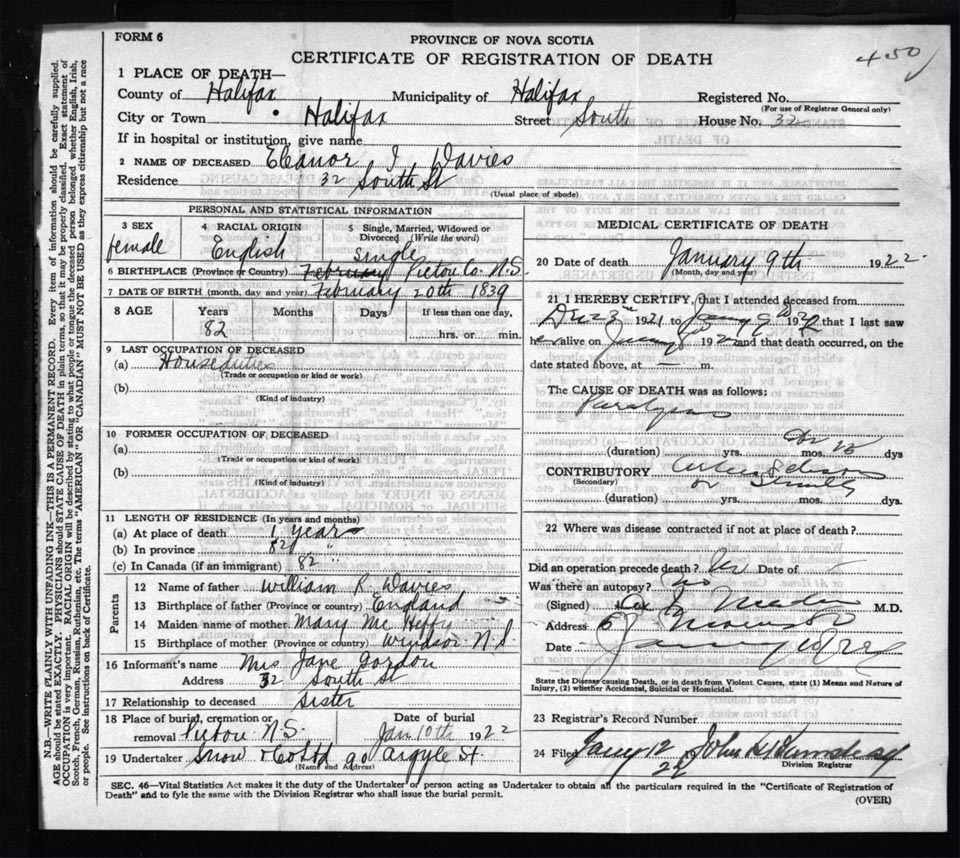 FORM 6
PROVINCE OF NOVA SCOTIA
CERTIFICATE OF REGISTRATION OF DEATH
450
1 PLACE OF DEATH—
County of Halifax Municipality of Halifax Registered No.
(For use of Registrar General only)
City or Town Halifax Street South House No. 32
If in hospital or institution, give name
2 NAME OF DECEASED Eleanor I. Davies
Residence 32 South St
(Usual place of abode)
PERSONAL AND STATISTICAL INFORMATION
3 SEX 4 RACIAL ORIGIN 5 Single, Married, Widowed or Divorced (Write the word)
female English single
6 BIRTHPLACE (Province or Country) February Pictou Co. N.S.
7 DATE OF BIRTH (month, day and year) February 20th 1839
8 AGE Years Months Days If less than one day,
82 hrs. or min.
9 LAST OCCUPATION OF DECEASED
(a) House duties
(Trade or occupation or kind or work)
(b)
(Kind of industry)
10 FORMER OCCUPATION OF DECEASED
(a)
(Trade or occupation or kind of work)
(b)
(Kind of industry)
11 LENGTH OF RESIDENCE (In years and months)
(a) At place of death years
(b) In province 82
(c) In Canada (if an immigrant) 82 "
Parents
12 Name of father William R. Davies
13 Birthplace of father (Province or country) England
14 Maiden name of mother Mary
15 Birthplace of mother (Province or country) Windsor N.S
16 Informant's name Mrs Jane Gordon
Address 32 South St
17 Relationship to deceased Sister
18 Place of burial, cremation or removal Pictou N.S. Date of burial Jan 10th 1922
19 Undertaker Snow & Co Ltd 90 Argyle St.
(Name and Address)
MEDICAL CERTIFICATE OF DEATH
20 Date of death January 9th 1922
(Month, day and year)
21 I HEREBY CERTIFY, that I attended deceased from
1921 to Jany 9 1922 that I last saw
her alive on 192 and that death occurred, on the
date stated above, at — m.
The CAUSE OF DEATH was as follows:
Paralysis
(duration) yrs. mos. dys
CONTRIBUTORY
(Secondary)
(duration) yrs. mos. dys.
22 Where was disease contracted if not at place of death?
Did an operation precede death? No Date of
Was there an autopsy? No
(Signed) M.D.
Address
Date
State the Disease causing Death, or in death from Violent Causes, state (1) Means and Nature of
Injury, (2) whether Accidental, Suicidal or Homicidal.
23 Registrar's Record Number
24 Filed Jany 12 22 John
Division Registrar
SEC. 46—Vital Statistics Act makes it the duty of the Undertaker or person acting as Undertaker to obtain all the particulars required in the "Certificate of Registration of
Death" and to fyle the same with the Division Registrar who shall issue the burial permit.
(OVER)
N.B.—WRITE PLAINLY WITH UNFADING INK—THIS IS A PERMANENT RECORD. Every item of information should be carefully supplied.
AGE should be stated EXACTLY. PHYSICIANS should STATE CAUSE OF DEATH in plain terms, so that it may be properly classified. Exact statement of
OCCUPATION is very important. RACIAL ORIGIN will be described by stating to what people or tongue the deceased person belonged whether English, Irish,
Scotch, French, German, Russian, Ruthenian, etc. The terms "AMERICAN" OR "CANADIAN" MUST NOT BE USED as they express citizenship but not a race
or people. See instructions on back of Certificate.